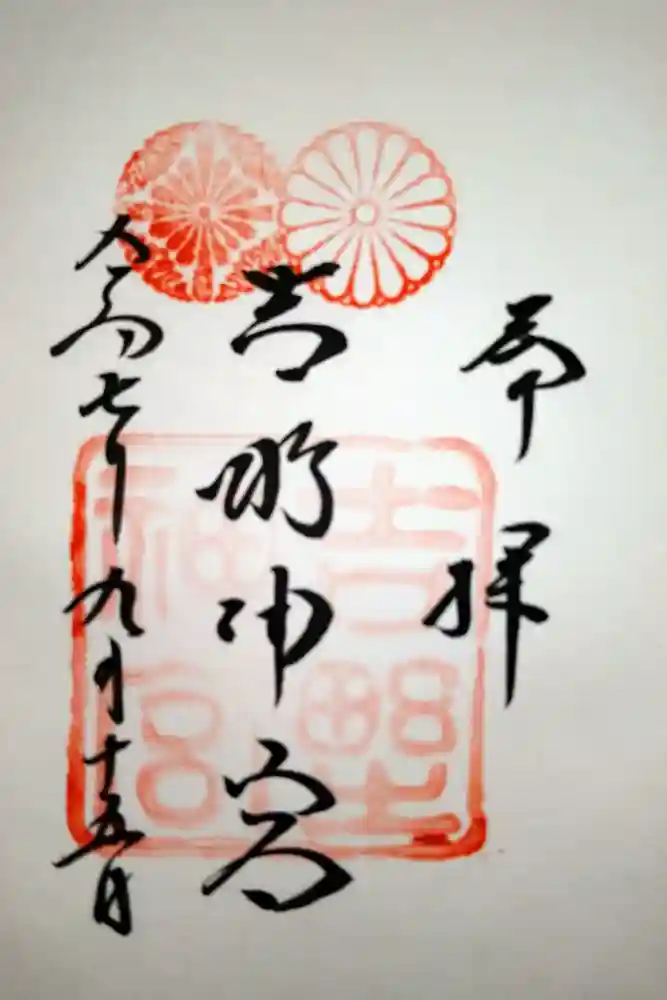 奉拝
吉野神宮
令和七年九月十五日
吉野神宮